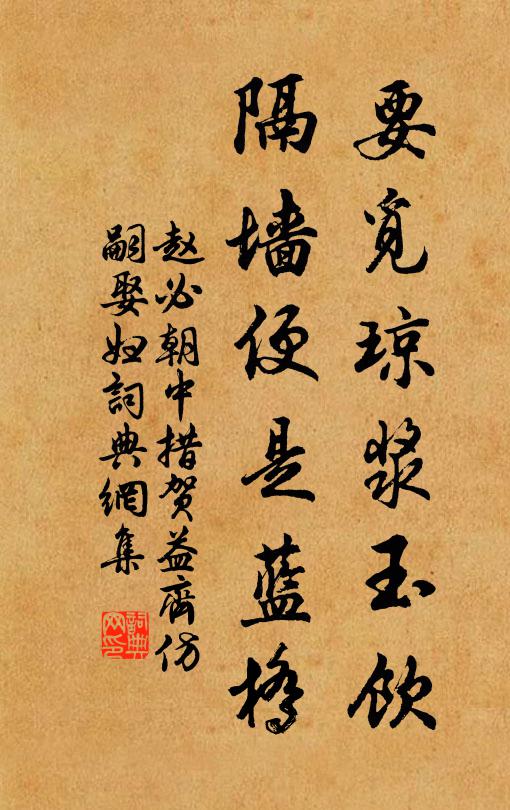 要觅琼浆玉饮
隔墙便是蓝桥
赵必朝中措贺益齐仿
嗣娶妇詞典網集
詞典网印